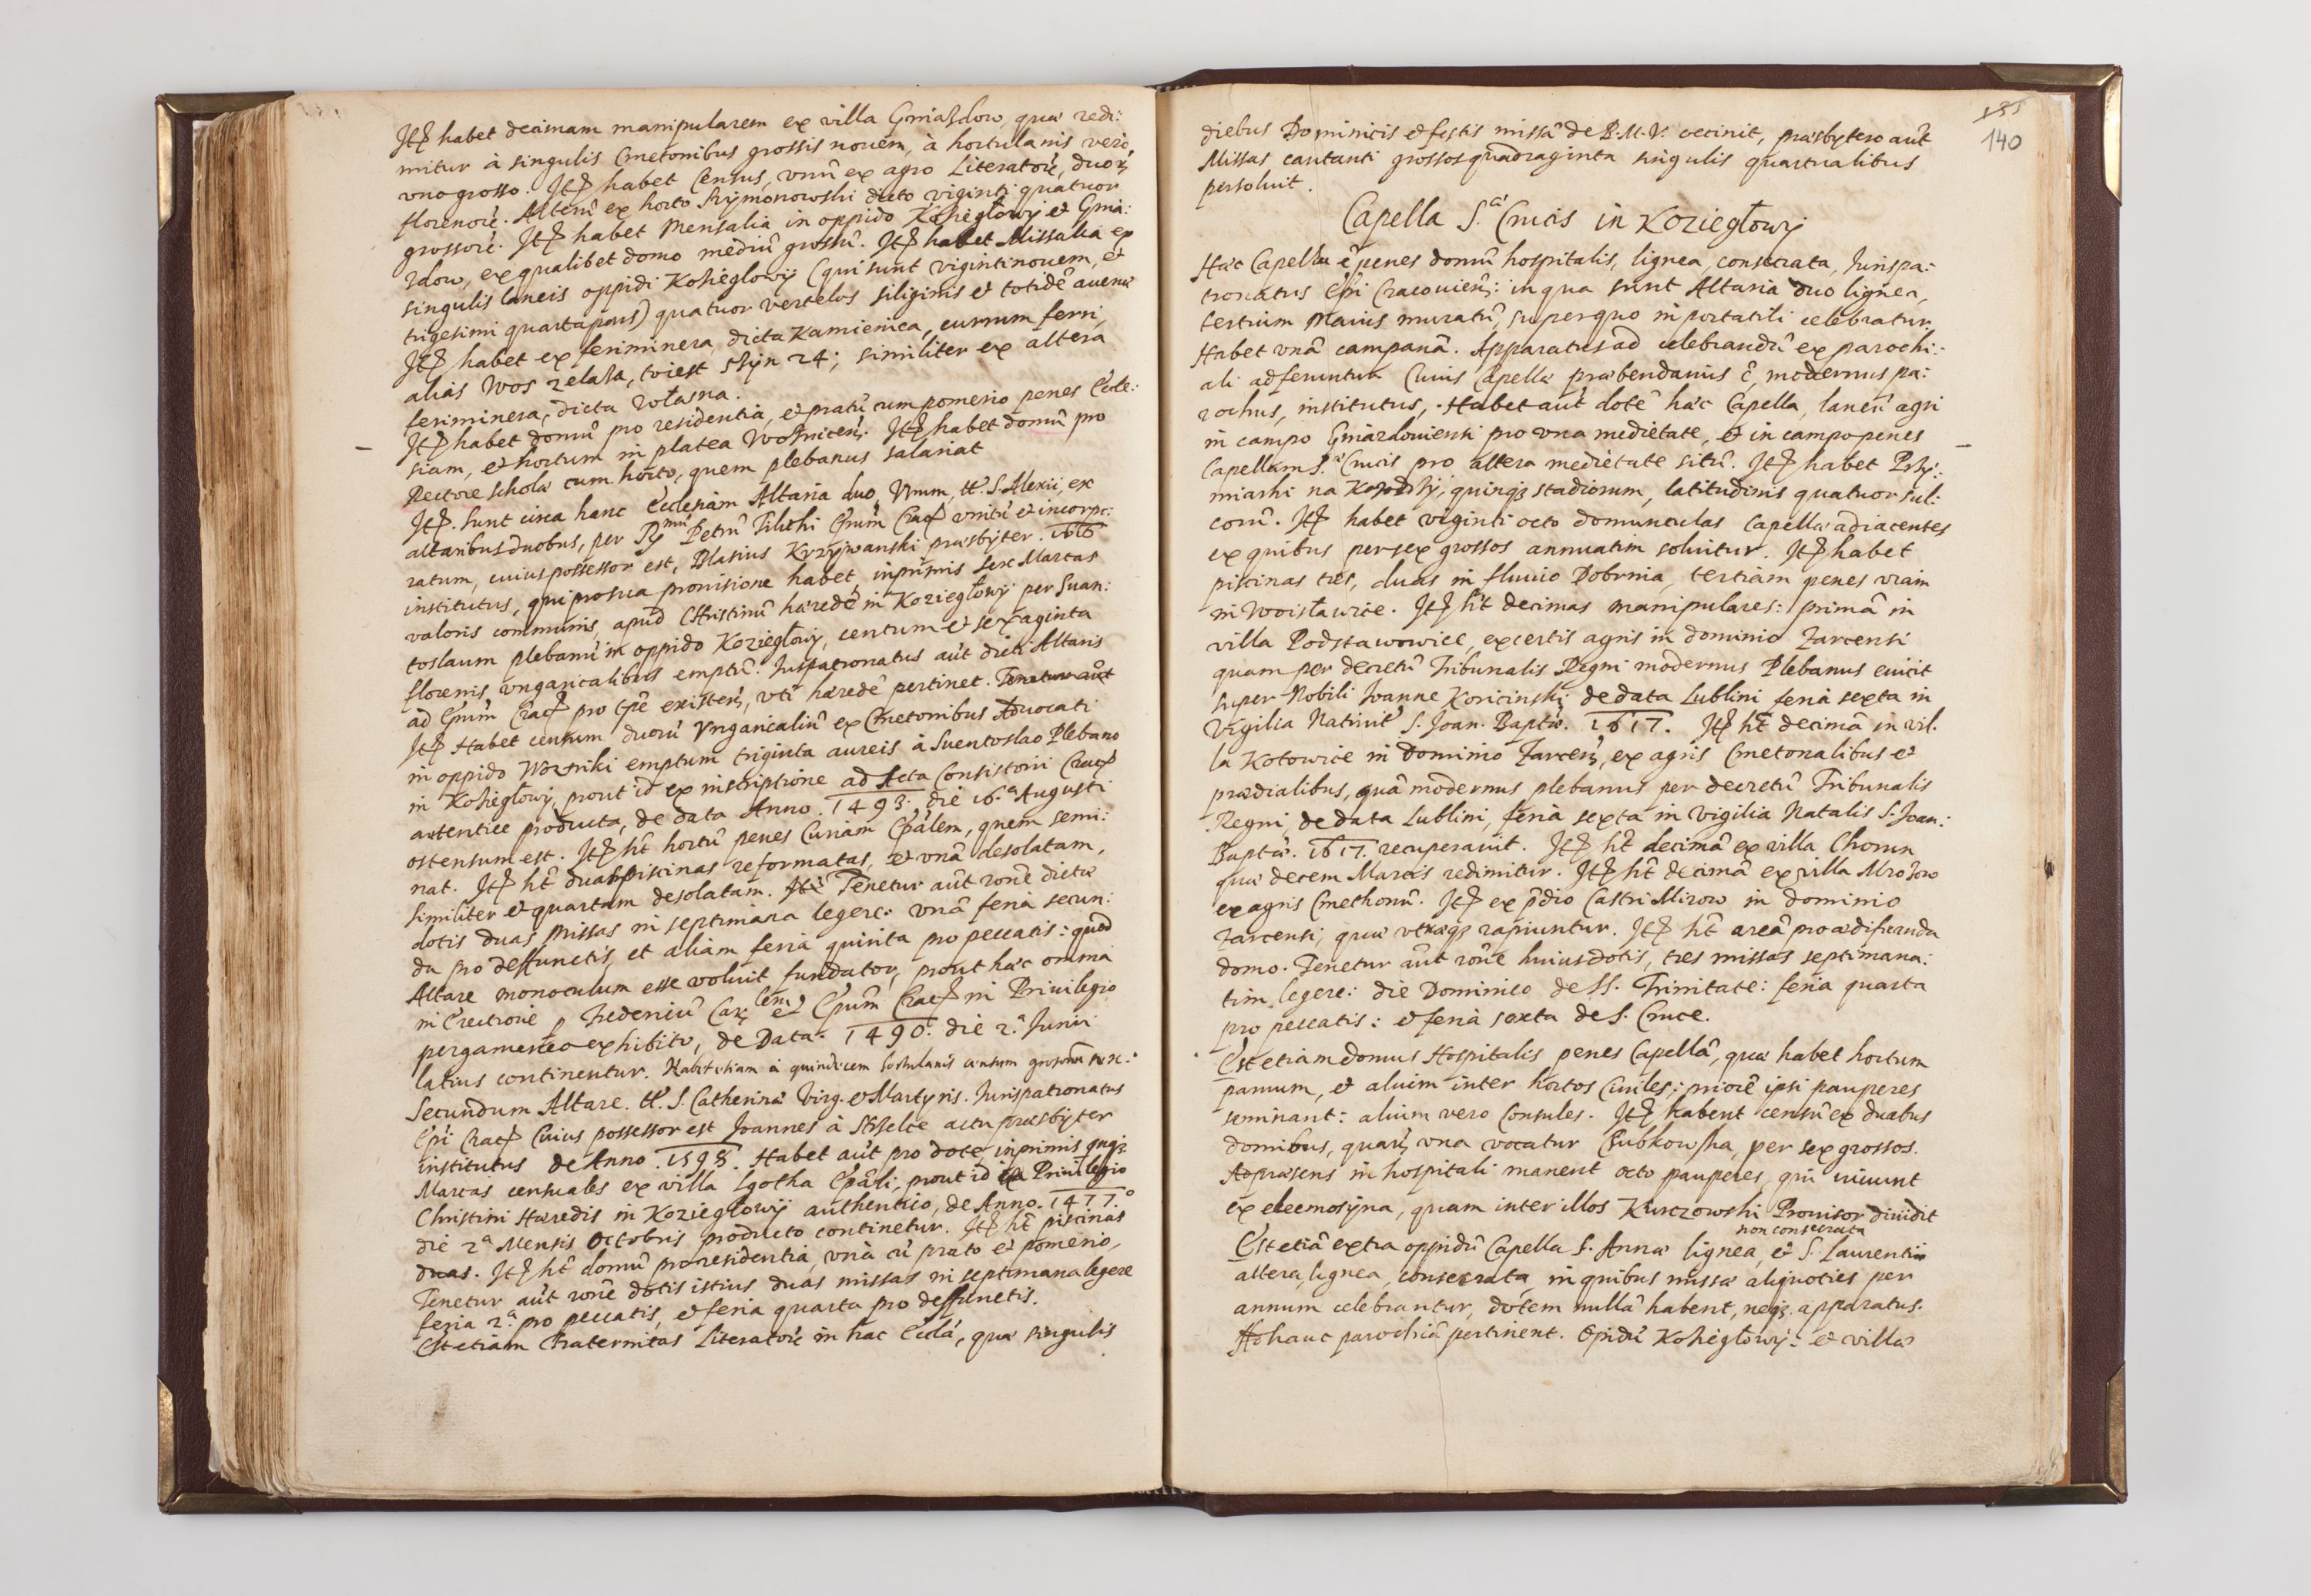 Itē habet decimam manipularem ex villa Gniazdow, quæ redi:
mitur à singulis Cmetonibus grossis nouem, à hortulanis verò
vno grosso. Itē habet Census, vnū ex agro Literatorū, duorȝ
florenorū. Alterū ex horto Szymonowski dicto viginti quatuor
grossorū. Itē habet Mensalia in oppido Koziegłowÿ et Gnia:
zdow, ex qualibet domo mediū grossū. Itē habet Missalia ex
singulis laneis oppidi Koziegłowÿ (qui sunt viginti nouem, et
trigesimi quarta pars) quatuor vertelos siliginis et totidē auenæ
Itē habet ex feriminera, dicta Kamienica, currum ferri,
alias Wos zelasa, to iest szÿn 24; similiter ex altera
feriminera, dicta Własna.
Itē habet domū pro residentia, et pratū cum pomerio penes Eccle:
siam, et hortum in platea Woznicen̄. Itē habet domū pro
Rectore scholæ cum horto, quem plebanus salariat
Itē. Sunt circa hanc Ecclesiam Altaria duo, Vnum, tt. S. Alexii, ex
altaribus duobus, per Rmum Petrū Tilicki Epūm Crac̄ vnitū et incorpo:
ratum, cuius possessor est, Blasius Krzÿwanski præsbÿter. 1616
institutus, qui pro sua prouisione habet, inprimis sex Marcas
valoris communis, apud Christinū hæredē in Koziegłowÿ per Suan:
toslaum plebanū in oppido Koziegłowÿ, centum et sexaginta
florenis vngaricalibus emptū. Iuspatronatus aūt dicti Altaris
ad Epūm Crac̄ pro tp̄e existen̄, vti hæredē pertinet. Tenetur aūt
Itē Habet censum duorū Vngaricaliū ex Cmetonibus Aduocati
in oppido Wozniki emptum triginta aureis à Suentoslao Plebano
in Koziegłowÿ, prout id ex inscriptione ad Acta Consistorii Crac̄
autentice producta, de data Anno. 1493. die 16.a Augusti
ostensum est. Itē hēt hortū penes Curiam Epālem, quem semi:
nat. Itē hēt duas piscinas reformatas, et vnā desolatam,
similiter et quartam desolatam. Itē Tenetur aūt rōne dictæ
dotis duas missas in septimana legere: vnā feria secun:
da pro deffunctis, et aliam feria quinta pro peccatis: quod
Altare monoculum esse voluit fundator, prout hæc omnia
in Erectione p Fridericū Carlem et Epūm Crac̄ in Priuilegio
pergameneo exhibito, de Data. 1490. die 2.a Junii
latius continentur. Habet etiam à quindecem hortulanis censum grossorū
Secundum Altare. tt. S. Catherinæ Virg. et Martyris. Jurispatronatus
Epī Crac̄ Cuius possessor est Joannes à Strzelce actu præsbÿter
institutus de Anno. 1598. Habet aūt pro dote, inprimis quīqȝ
Marcas censuales ex villa Lgotha Epāli, prout id ex Priuilegio
Christini Hæredis in Koziegłowÿ authentico, de Anno. 1477.o
die 2.a Mensis Octobris producto continetur. Itē hēt piscinas
duas. Itē hēt domū pro residentia, vnà cū prato et pomerio,
Tenetur aūt rōne dotis istius duas missas in septimana legere
feria 2.a pro peccatis, et feria quarta pro deffunctis.
Est etiam Fraternitas Literatorū in hac Ecclā, quæ singulis
135
140
diebus Dominicis et festis missā de B. M. V. occinit, præsbytero aūt
Missas cantanti grossos quadraginta singulis quartualibus
persoluit.
Capella S.æ Crucis in Koziegłowÿ
Hæc Capella ē penes domū hospitalis, lignea, consecrata, Jurispa:
tronatus Epī Cracouien̄: in qua sunt Altaria duo lignea,
tertium Maius muratū, super quo in portatili celebratur.
Habet vnā campanā. Apparatus ad celebrandū ex parochi:
ali adferuntur. Cuius Capellæ præbendarius ē, modernus pa:
rochus, institutus, Habet aūt dotē hæc Capella, laneū agri
in campo Gniazdouiensi pro vna medietate, et in campo penes
Capellam S.æ Crucis pro altera medietate sitū. Itē habet Przÿ:
miarki na , quinqȝ stadiorum, latitudinis quatuor sul:
corū. Itē habet viginti octo domunculas Capellæ adiacentes
ex quibus per sex grossos annuatim soluitur. Itē habet
piscinas tres, duas in fluuio Dobrnia, tertiam penes viam
in Woisławice. Itē hēt decimas manipulares: primā in
villa Podstawowice, ex certis agris in dominio Zarcensi
quam per decretū Tribunalis Regni modernus Plebanus euicit
super Nobili Joanne Koricinski, de data Lublini feria sexta in
Vigilia Natiuit̄ S. Joan. Baptæ. 1617. Itē hēt decimā in vil.
la Kotowice in dominio Zarcen̄, ex agris Cmetonalibus et
prædialibus, quā modernus plebanus per decretū Tribunalis
Regni, de data Lublini, feria sexta in Vigilia Natalis S. Joan:
Baptæ. 1617. recuperauit. Itē hēt decimā ex villa Chorun
quæ decem Marcis redimitur. Itē hēt decimā ex villa Mrozow
ex agris Cmethonū. Itē ex p̄dio Castri Mirow in dominio
Zarcensi, quæ vtraqȝ rapiuntur. Itē hēt areā pro ædificanda
domo. Tenetur aūt rōne huius dotis, tres missas septimana:
tim legere: die Dominico de SS. Trinitate: feria quarta
pro peccatis: et feria sexta de S. Cruce.
Est etiam domus Hospitalis penes Capellā, quæ habet hortum
paruum, et alium inter hortos Ciuiles; priorē ipsi pauperes
seminant: alium vero Consules. Itē habent censū ex duabus
domibus, quarȝ vna vocatur Czubkowska, per sex grossos.
Ad præsens in hospitali manent octo pauperes, qui viuunt
ex eleemosÿna, quam inter illos Kurczowski Prouisor diuidit
non consecrata
Est etiā extra oppidū Capella S. Annæ lignea, et S. Laurentii
altera, lignea, consecrata, in quibus missæ aliquoties per
annum celebrantur, dotem nullā habent, neqȝ apparatus.
Ad hanc parochiā pertinent. Opidū Koziegłowÿ: et villæ